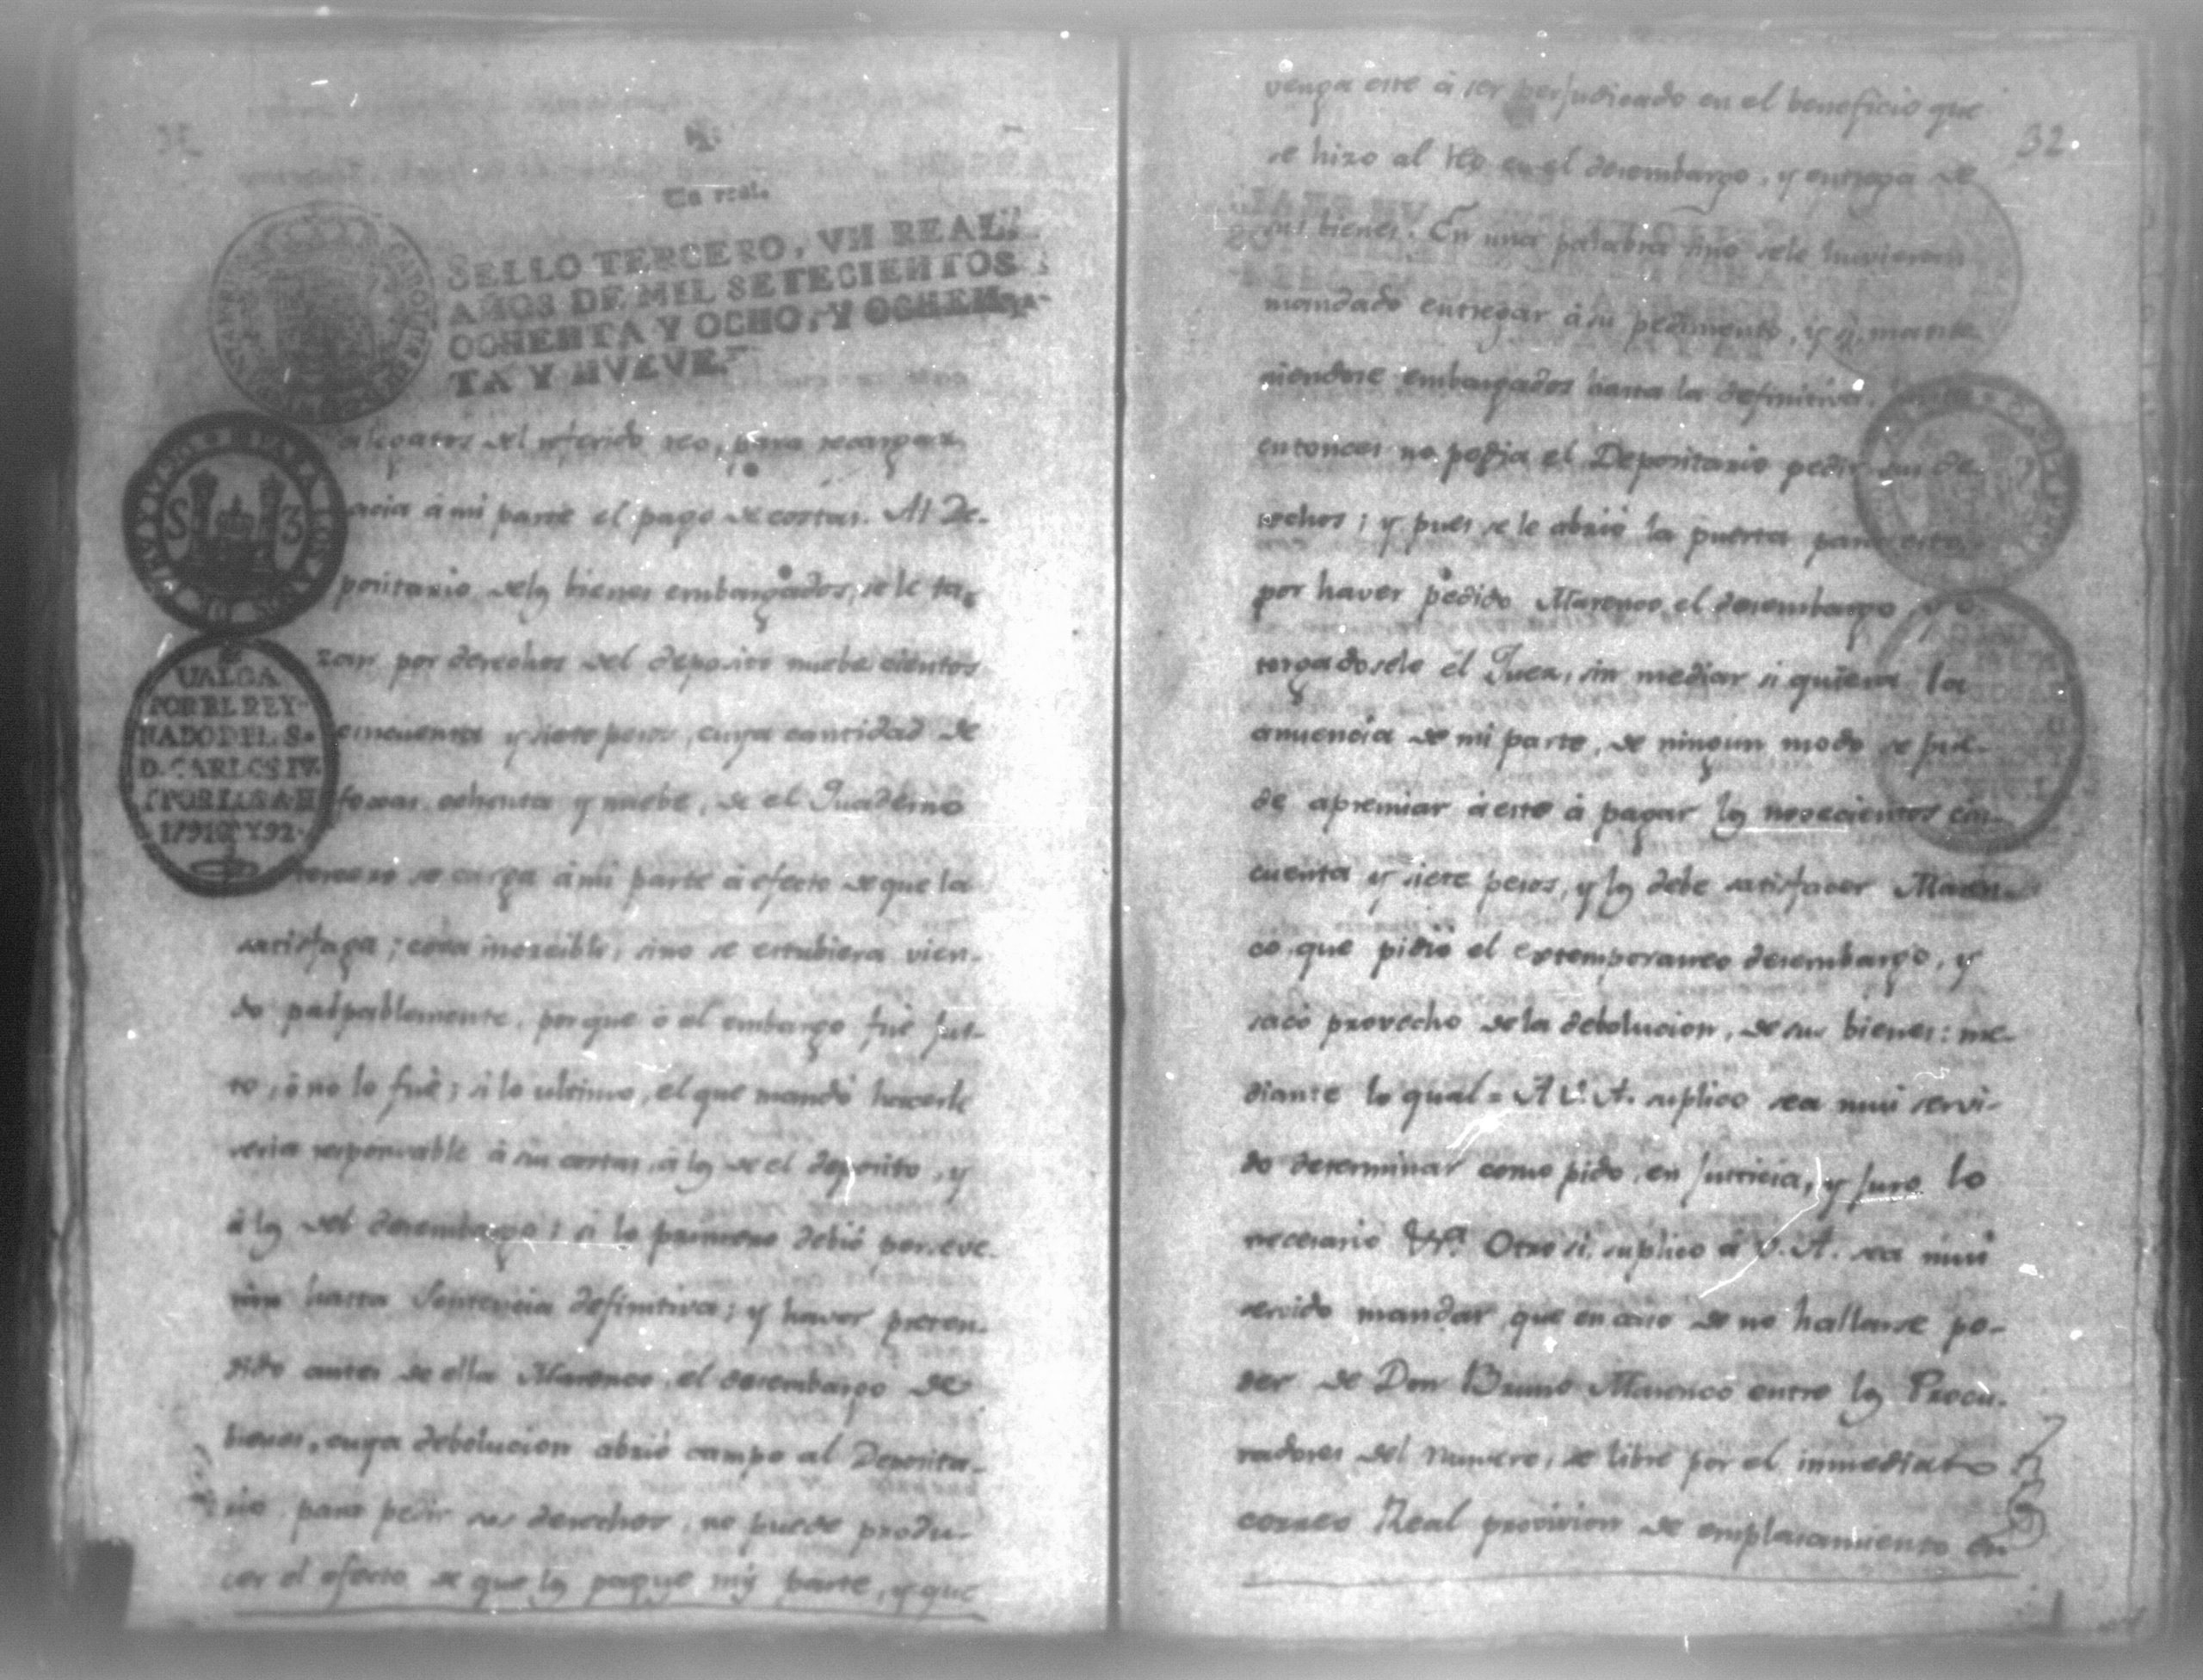 Un real.
SELLO TERCERO, UN REAL,
AÑOS DE MIL SETECIENTOS
OCHENTA Y OCHO, Y OCHEN-
TA Y NUEVE.
S 3
VALGA
POR EL REY-
NADO DEL S.
D. CARLOS IV.
1791 Y 92.
alegatos del referido reo, para recargar
acia á mi parte el pago de costas. Al De-
positario delos bienes embargados, se le ta-
zan por derechos del deposito nuebe cientos
cincuenta y siete pesos, cuya cantidad de
foxas ochenta y nuebe, de el Quaderno
tercero se carga á mi parte á efecto de que la
satisfaga; cosa increible, sino se estubiera vien-
do palpablemente, porque ó el embargo fué jus-
to, ó no lo fué; si lo ultimo, el que mandó hacerle
seria responsable á sus costas, á los de el deposito, y
á los del desembargo; si lo primero debió perseve-
hasta Sentencia definitiva; y haver preten-
dido antes de ella Marenco, el desembargo de
bienes, cuya debolucion abrió campo al Deposita-
rio para pedir sus derechos, no puede produ-
cir el efecto de que los pague mi parte, y que
32
venga este á ser perjudicado en el beneficio que
se hizo al reo en el desembargo, y entrega de
sus bienes. En una palabra sino sele huvieran
mandado entregar á su pedimento, y si mante-
niendose embargados hasta la definitiva,
entonces no podia el Depositario pedir sus de-
rechos; y pues se le abrió la puerta para esto
por haver pedido Marenco, el desembargo, y o-
torgadosele el Juez, sin mediar si quiera la
anuencia de mi parte, de ningun modo se pue-
de apremiar á este á pagar los novecientos cin-
cuenta y siete pesos, y los debe satisfacer Maren-
co que pidió el extemporaneo desembargo, y
sacó provecho dela debolucion, de sus bienes: me-
diante lo qual = A V. A. suplico sea mui servi-
do determinar como pido, en justicia, y juro lo
necesario &ª. Otro si, suplico á V. A. sea mui
servido mandar que en caso de no hallarse po-
der de Don Bruno Marenco entre los Procu-
radores del numero, se libre por el inmediato
correo Real provision de emplazamiento en